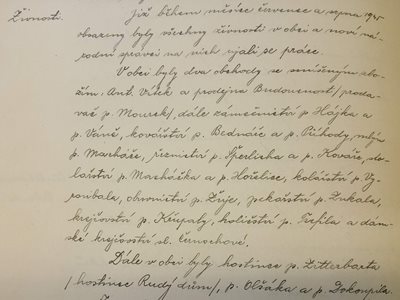 Živnosti.
Již během měsíce července a srpna 1945
obsazeny byly všechny živnosti v obci a noví ná-
rodní správci na nich ujali se práce.
V obci byly dva obchody se smíšeným zbo-
žím: Ant. Vítek a prodejna Budoucnost /proda-
vač p. Mourek/, dále zámečnictví p. Hájka a
p. Váně, kovářství p. Bednáře a p. Příhody, mlýn
p. Marháče, řeznictví p. Šperlicha a p. Kováře, sto-
lařství p. Macháčka a p. Hořelice, kolářství p. Vy-
sribala, obuvnictví p. Žuje, pekařství p. Zukala,
krejčovství p. Křupaly, holičství p. Trefila a dám-
ské krejčovství sl. Černochové.
Dále v obci byly hostince p. Zitterbarta
/hostinec Rudý dům/, p. Olšáka a p. Dokoupila.